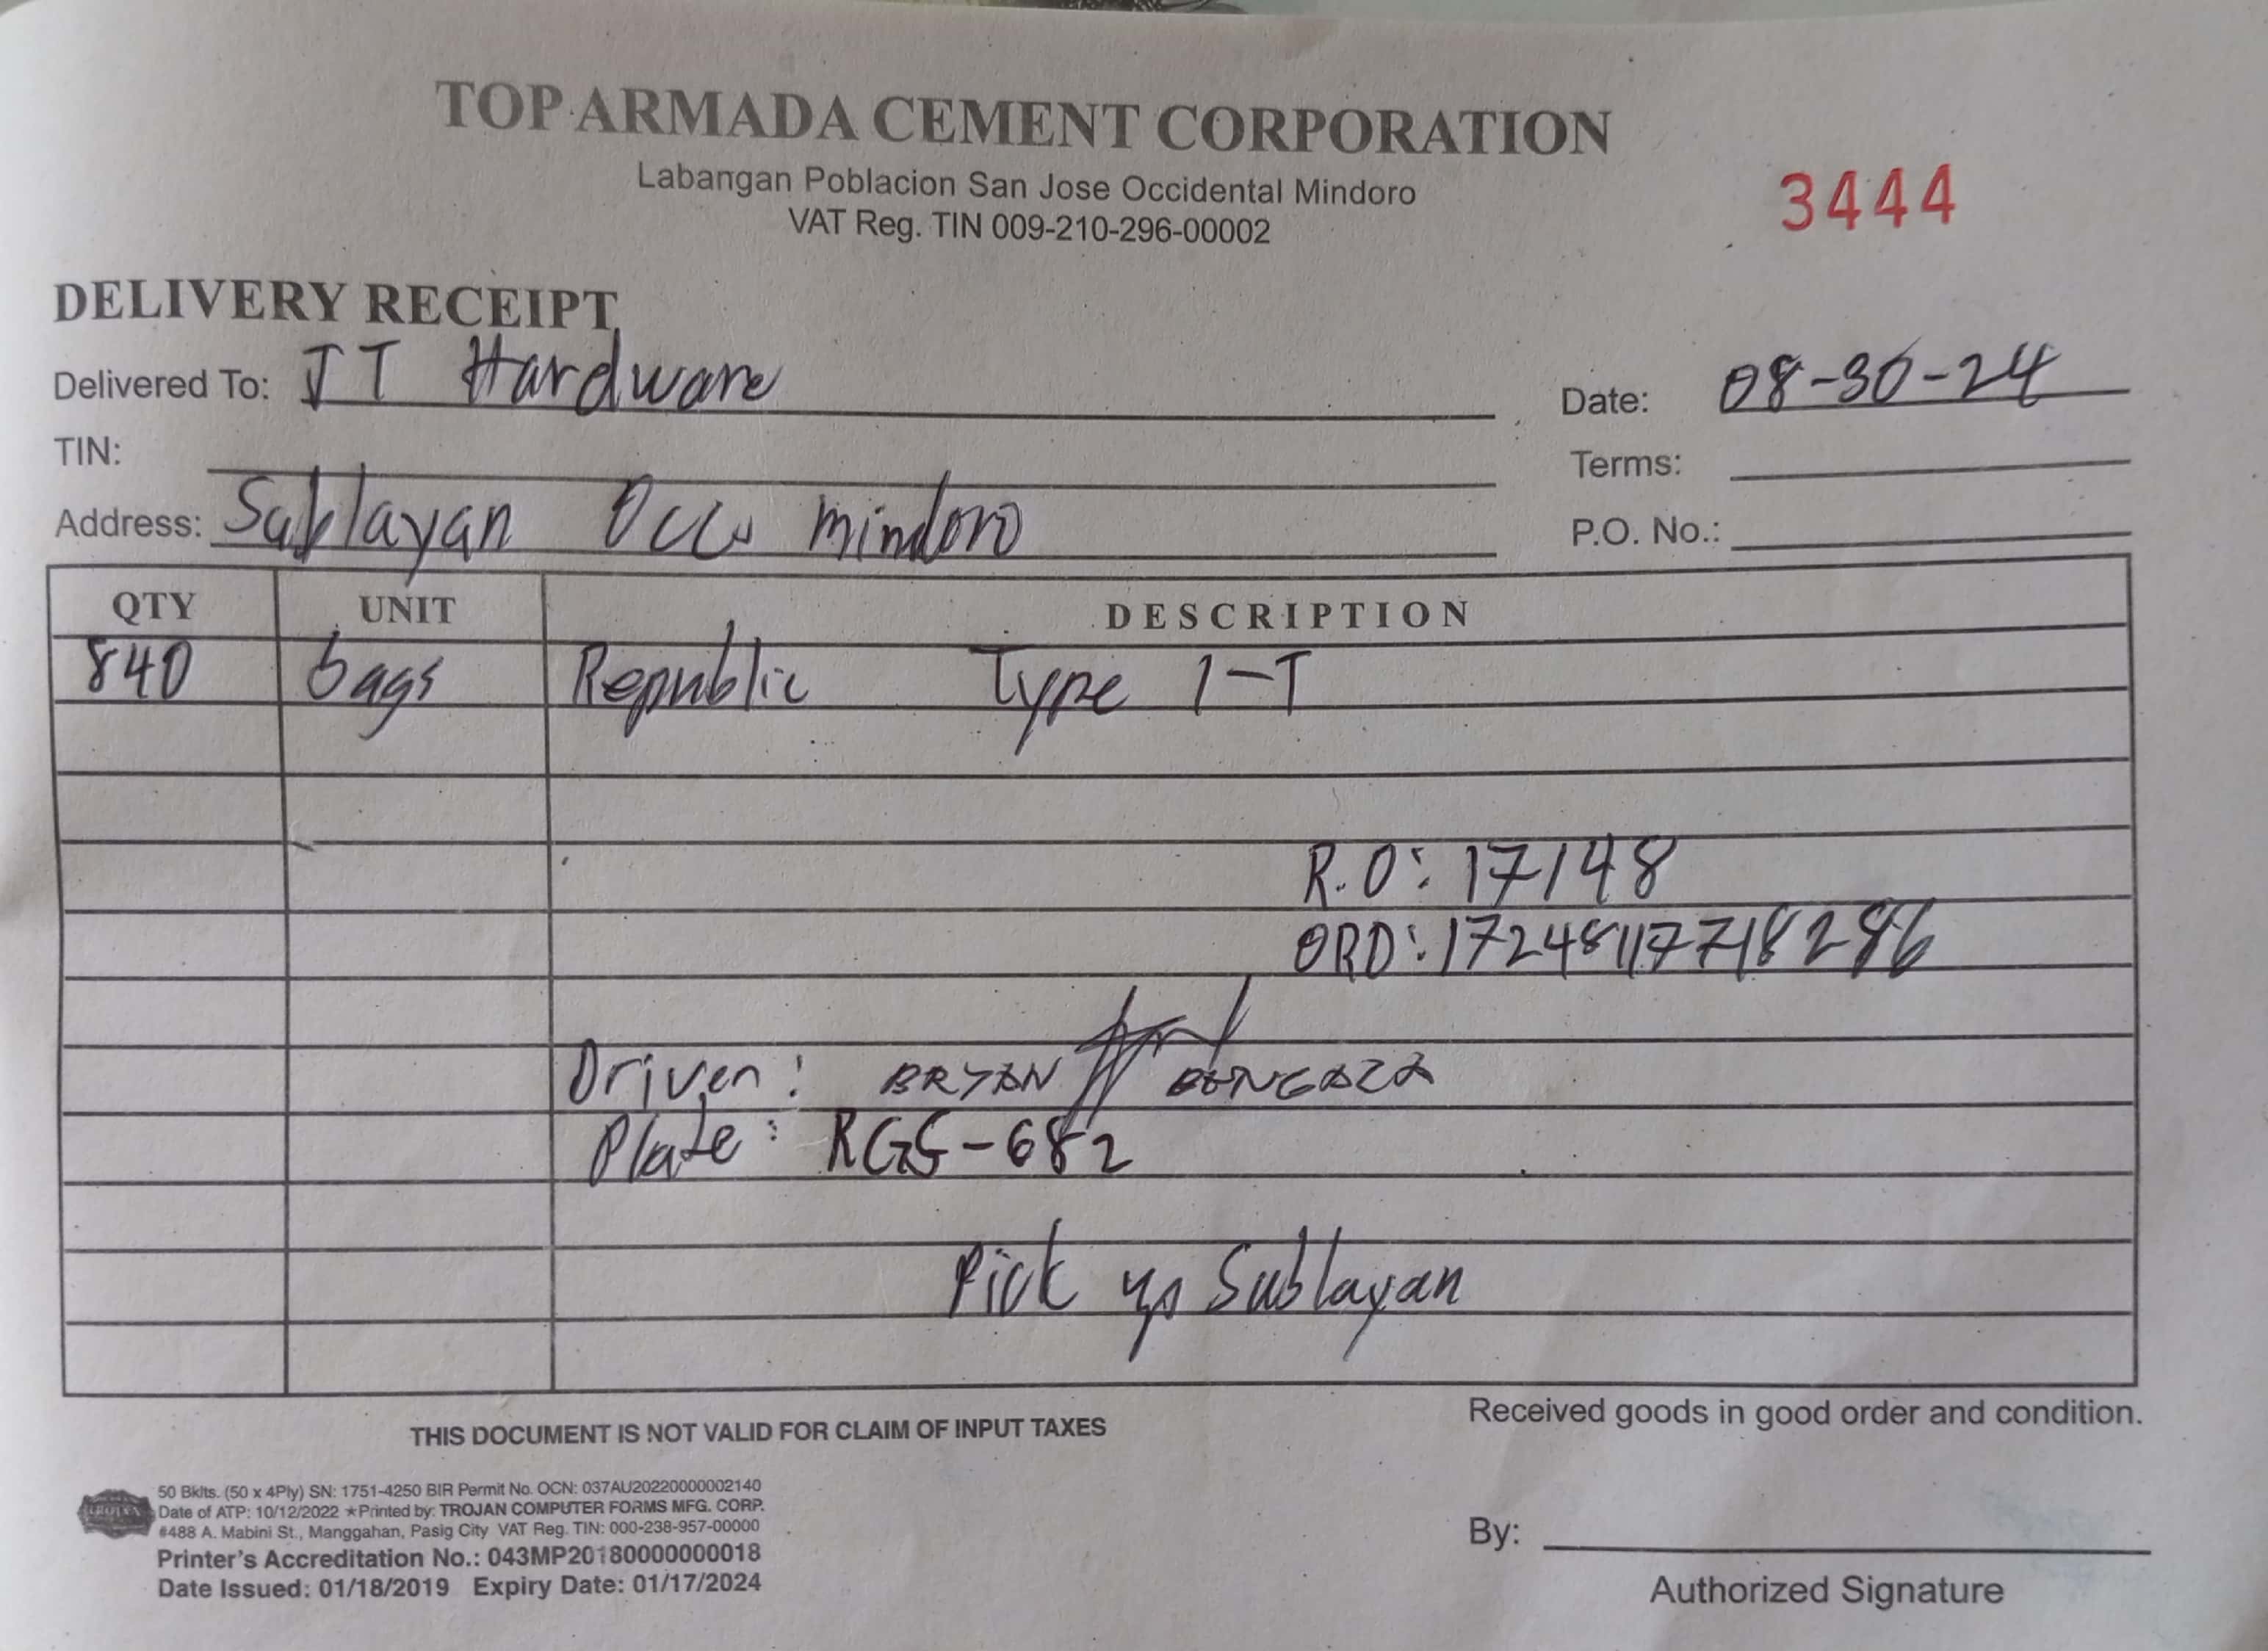 TOP ARMADA CEMENT CORPORATION
Labangan Poblacion San Jose Occidental Mindoro
VAT Reg. TIN 009-210-296-00002
3444
DELIVERY RECEIPT
Delivered To: JT Hardware
Date: 08-30-24
TIN:
Terms:
Address: Sablayan Occ. Mindoro
P.O. No.:
QTY UNIT DESCRIPTION
840 bags Republic Type 1-T
R.O: 17148
ORD: 17248117718286
Driver: BRYAN
Plate: RGG-682
Pick up Sablayan
THIS DOCUMENT IS NOT VALID FOR CLAIM OF INPUT TAXES
Received goods in good order and condition.
50 Bklts. (50 x 4Ply) SN: 1751-4250 BIR Permit No. OCN: 037AU20220000002140
Date of ATP: 10/12/2022 ★Printed by: TROJAN COMPUTER FORMS MFG. CORP.
#488 A. Mabini St., Manggahan, Pasig City VAT Reg. TIN: 000-238-957-00000
Printer's Accreditation No.: 043MP20180000000018
Date Issued: 01/18/2019 Expiry Date: 01/17/2024
By:
Authorized Signature